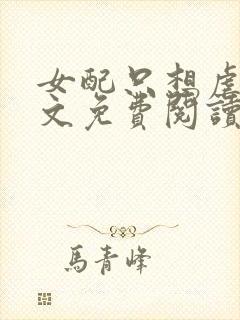 女配只想虐
文免費閱讀
馬青峰